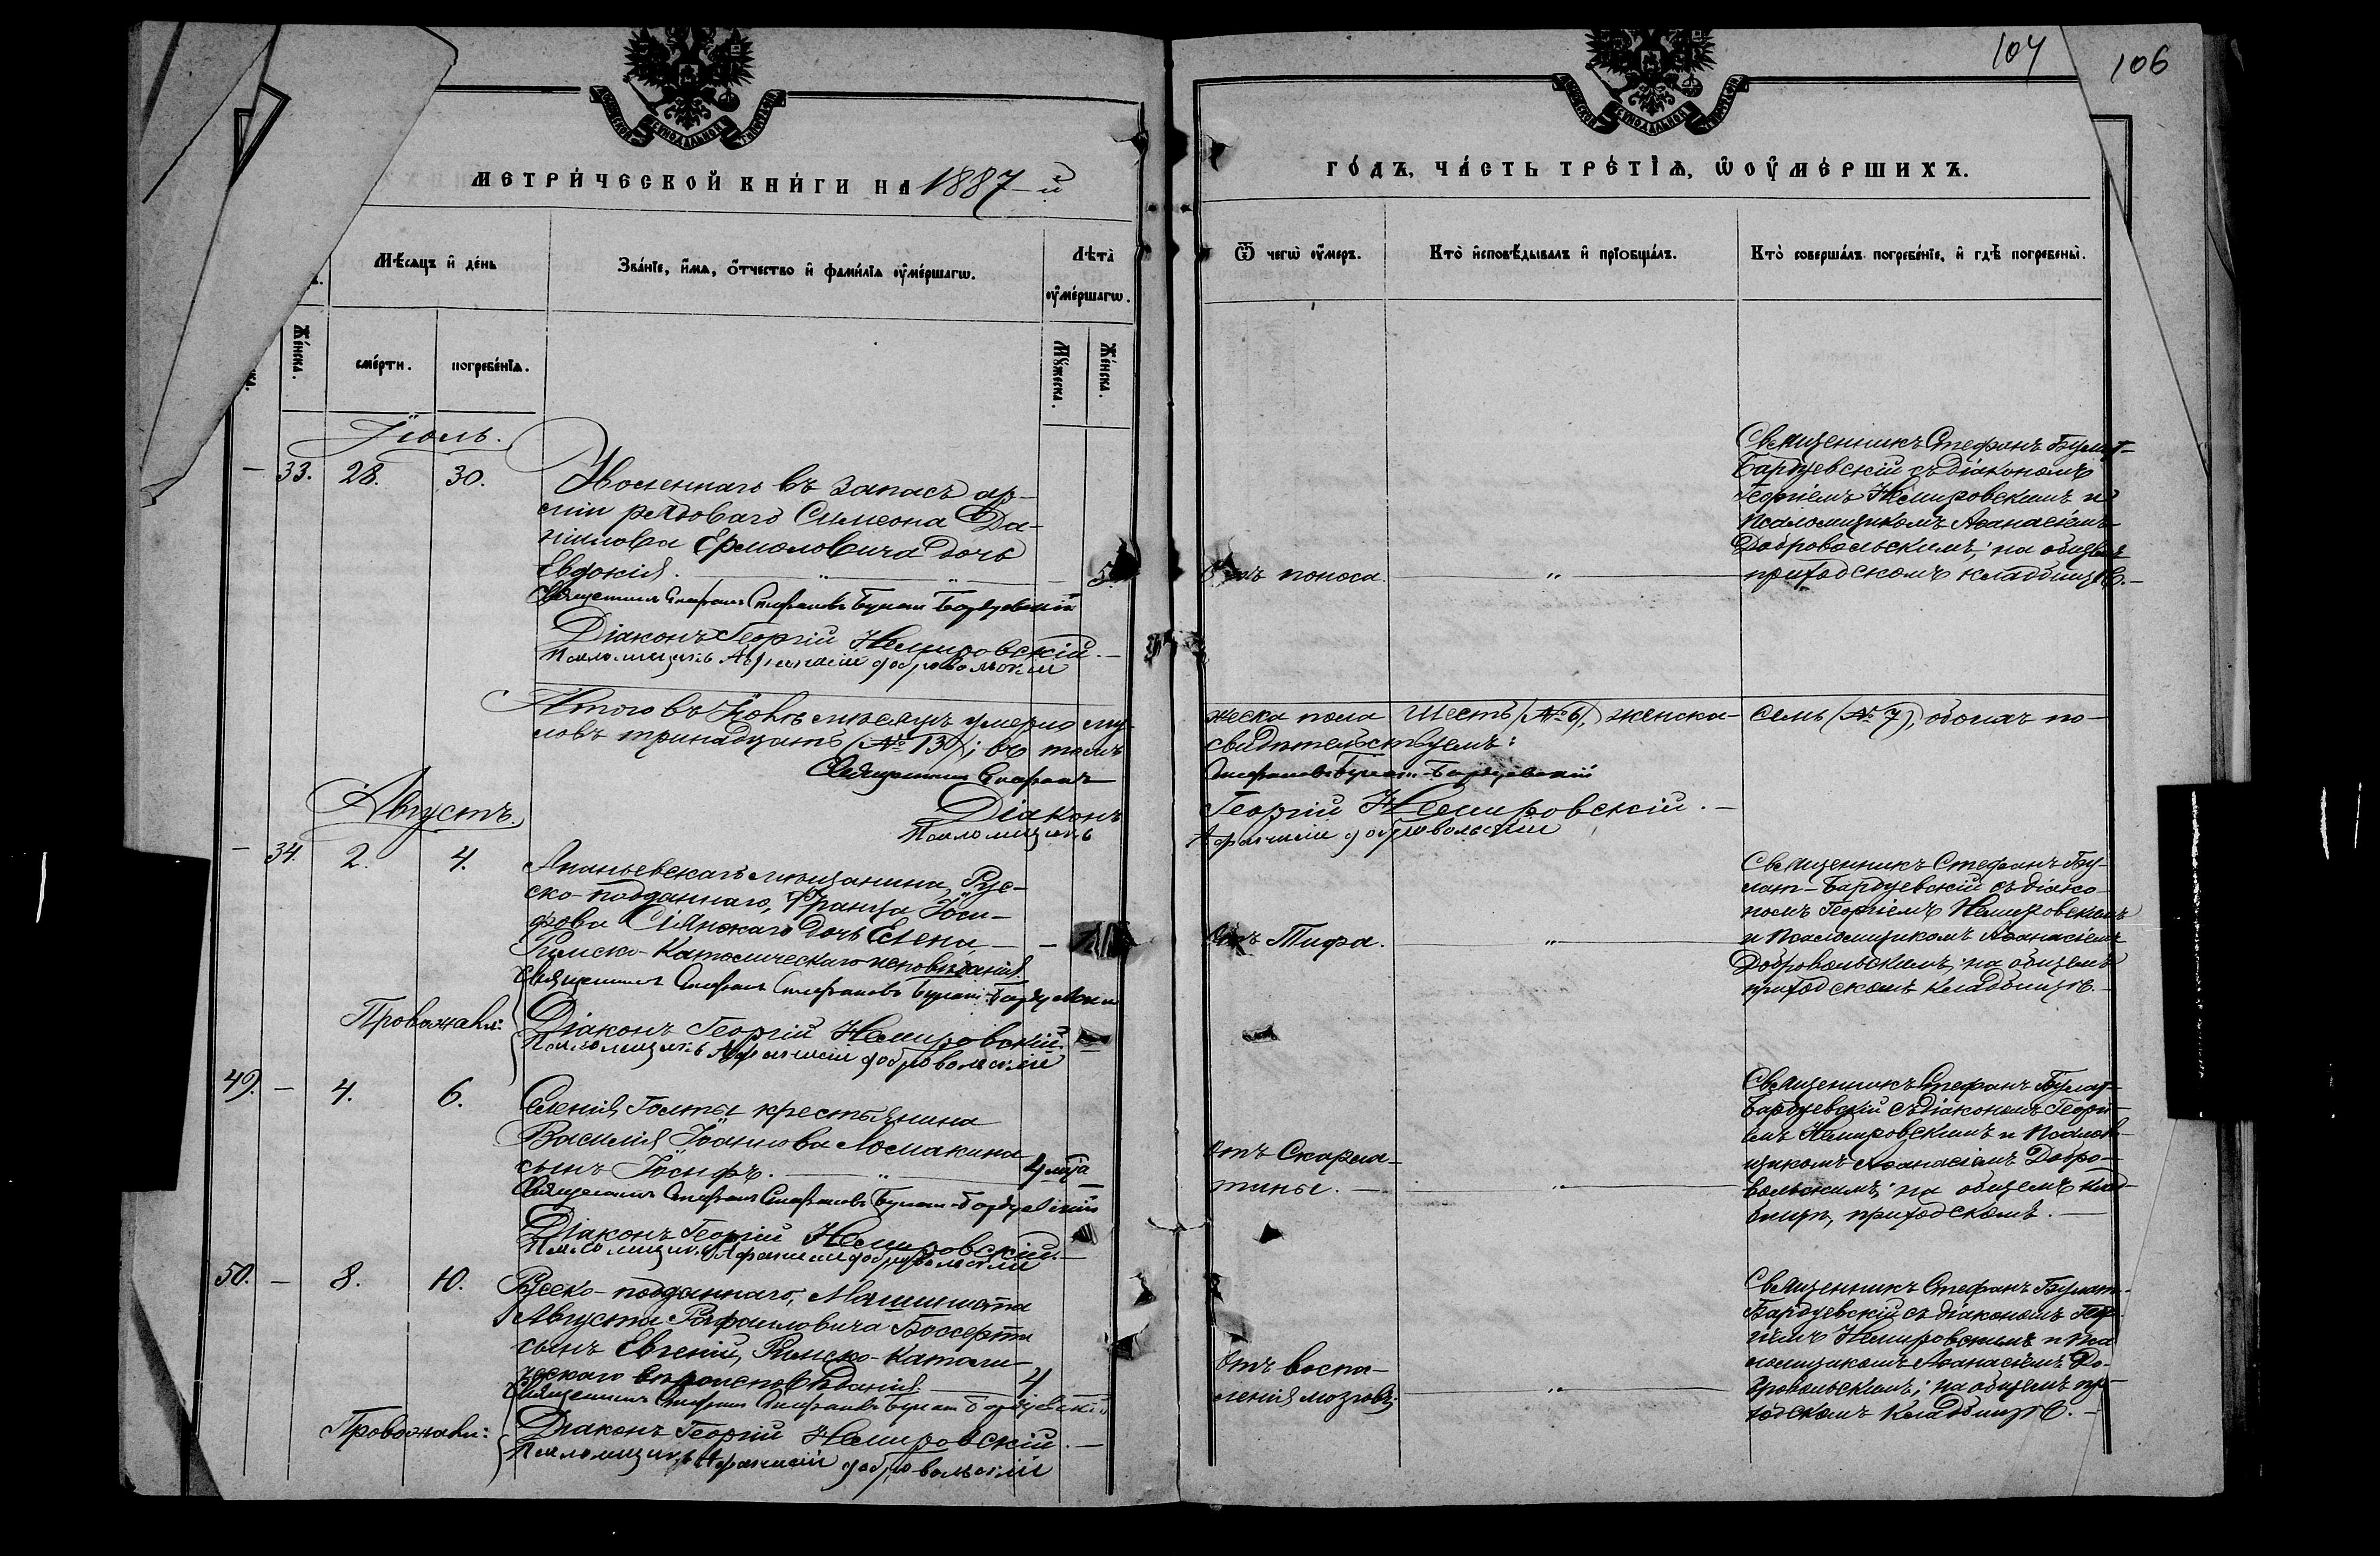 104
106
МЕТРИ́ЧЕСКОЙ КНИ́ГИ НА 1887-й
ГО́ДЪ, ЧА́СТЬ ТРЕ́ТІѦ, Ѡ ОУ҆МЕ́РШИХЪ.
Мѣ́сяцъ и҆ де́нь
Зва́нїе, и҆́мѧ, ѻ҆́тчество и҆ фами́лїѧ оу҆ме́ршагѡ.
Лѣта̀ оу҆ме́ршагѡ.
Ѿ чегѡ̀ оу҆́меръ.
Кто̀ и҆сповѣ́дывалъ и҆ прїобща́лъ.
Кто̀ соверша́лъ погребе́нїе, и҆ гдѣ̀ погребены̀.
Же́нска.
сме́рти.
погребе́нїѧ.
Мꙋ́жеска.
Же́нска.
Іюль.
— 33. 28. 30.
Уволеннаго въ запасъ ар-
міи рядоваго Симеона Да-
нилова Ермоловича дочь
Евдокія. — " — " — 5
Священникъ Стефанъ Стефановъ Булат Бардуевскій
Діаконъ Георгій Немировскій. —
Псаломщикъ Афанасій Добровольскій
поноса. — " —
Священникъ Стефанъ Булат-
Бардуевскій съ діакономъ
Георгіемъ Немировскимъ и
Псаломщикомъ Аѳанасіемъ
Добровольскимъ; на общемъ
приходскомъ кладбищѣ. —
Итого въ Іюлѣ мѣсяцѣ умерло му-
жеска пола шесть (№ 6), женска- семь (№ 7), обоихъ по-
ловъ тринадцать (№ 13); въ томъ
свидѣтельствуемъ:
Священникъ Стефанъ
Стефановъ Булат-Бардуевскій
Діаконъ
Георгій Немировскій. —
Псаломщикъ
Афанасій Добровольскій
Августъ.
— 34. 2. 4.
Ананьевскаго мѣщанина, Рус-
ско-подданнаго, Франца Іоси-
фова Сіянскаго дочь Елена — —
Римско-Католическаго исповѣданія.
Священникъ Стефанъ Стефановъ Булат-Бардуевскій
Провожали:
Діаконъ Георгій Немировскій. —
Псаломщикъ Афанасій Добровольскій
Отъ Тифа. — " —
Священникъ Стефанъ Бу-
лат-Бардуевскій съ діако-
номъ Георгіемъ Немировскимъ
и Псаломщикомъ Аѳанасіемъ
Добровольскимъ, на общемъ
приходскомъ кладбищѣ. —
49. — 4. 6.
Селенія Голты крестьянина
Василія Іоаннова Ломакина
сынъ Іосифъ. — " — 4 —
Священникъ Стефанъ Стефановъ Булат-Бардуевскій
Діаконъ Георгій Немировскій. —
Псаломщикъ Афанасій Добровольскій
Отъ Скарла-
тины. — — " —
Священникъ Стефанъ Булат-
Бардуевскій съ діакономъ Георгі-
емъ Немировскимъ и Псалом-
щикомъ Аѳанасіемъ Добро-
вольскимъ; на общемъ клад-
бищѣ, приходскомъ. —
50. — 8. 10.
Русско-подданнаго, Машиниста
Августа Рафаиловича Боссерта
сынъ Евгеній, Римско-Католи-
ческаго вѣроисповѣданія — 4
Священникъ Стефанъ Стефановъ Булат Бардуевскій
Провожали:
Діаконъ Георгій Немировскій. —
Псаломщикъ Афанасій Добровольскій
Отъ воспа-
ленія мозговъ. — " —
Священникъ Стефанъ Булат-
Бардуевскій съ діакономъ Геор-
гіемъ Немировскимъ и Пса-
ломщикомъ Аѳанасіемъ До-
бровольскимъ; на общемъ при-
ходскомъ кладбищѣ. —